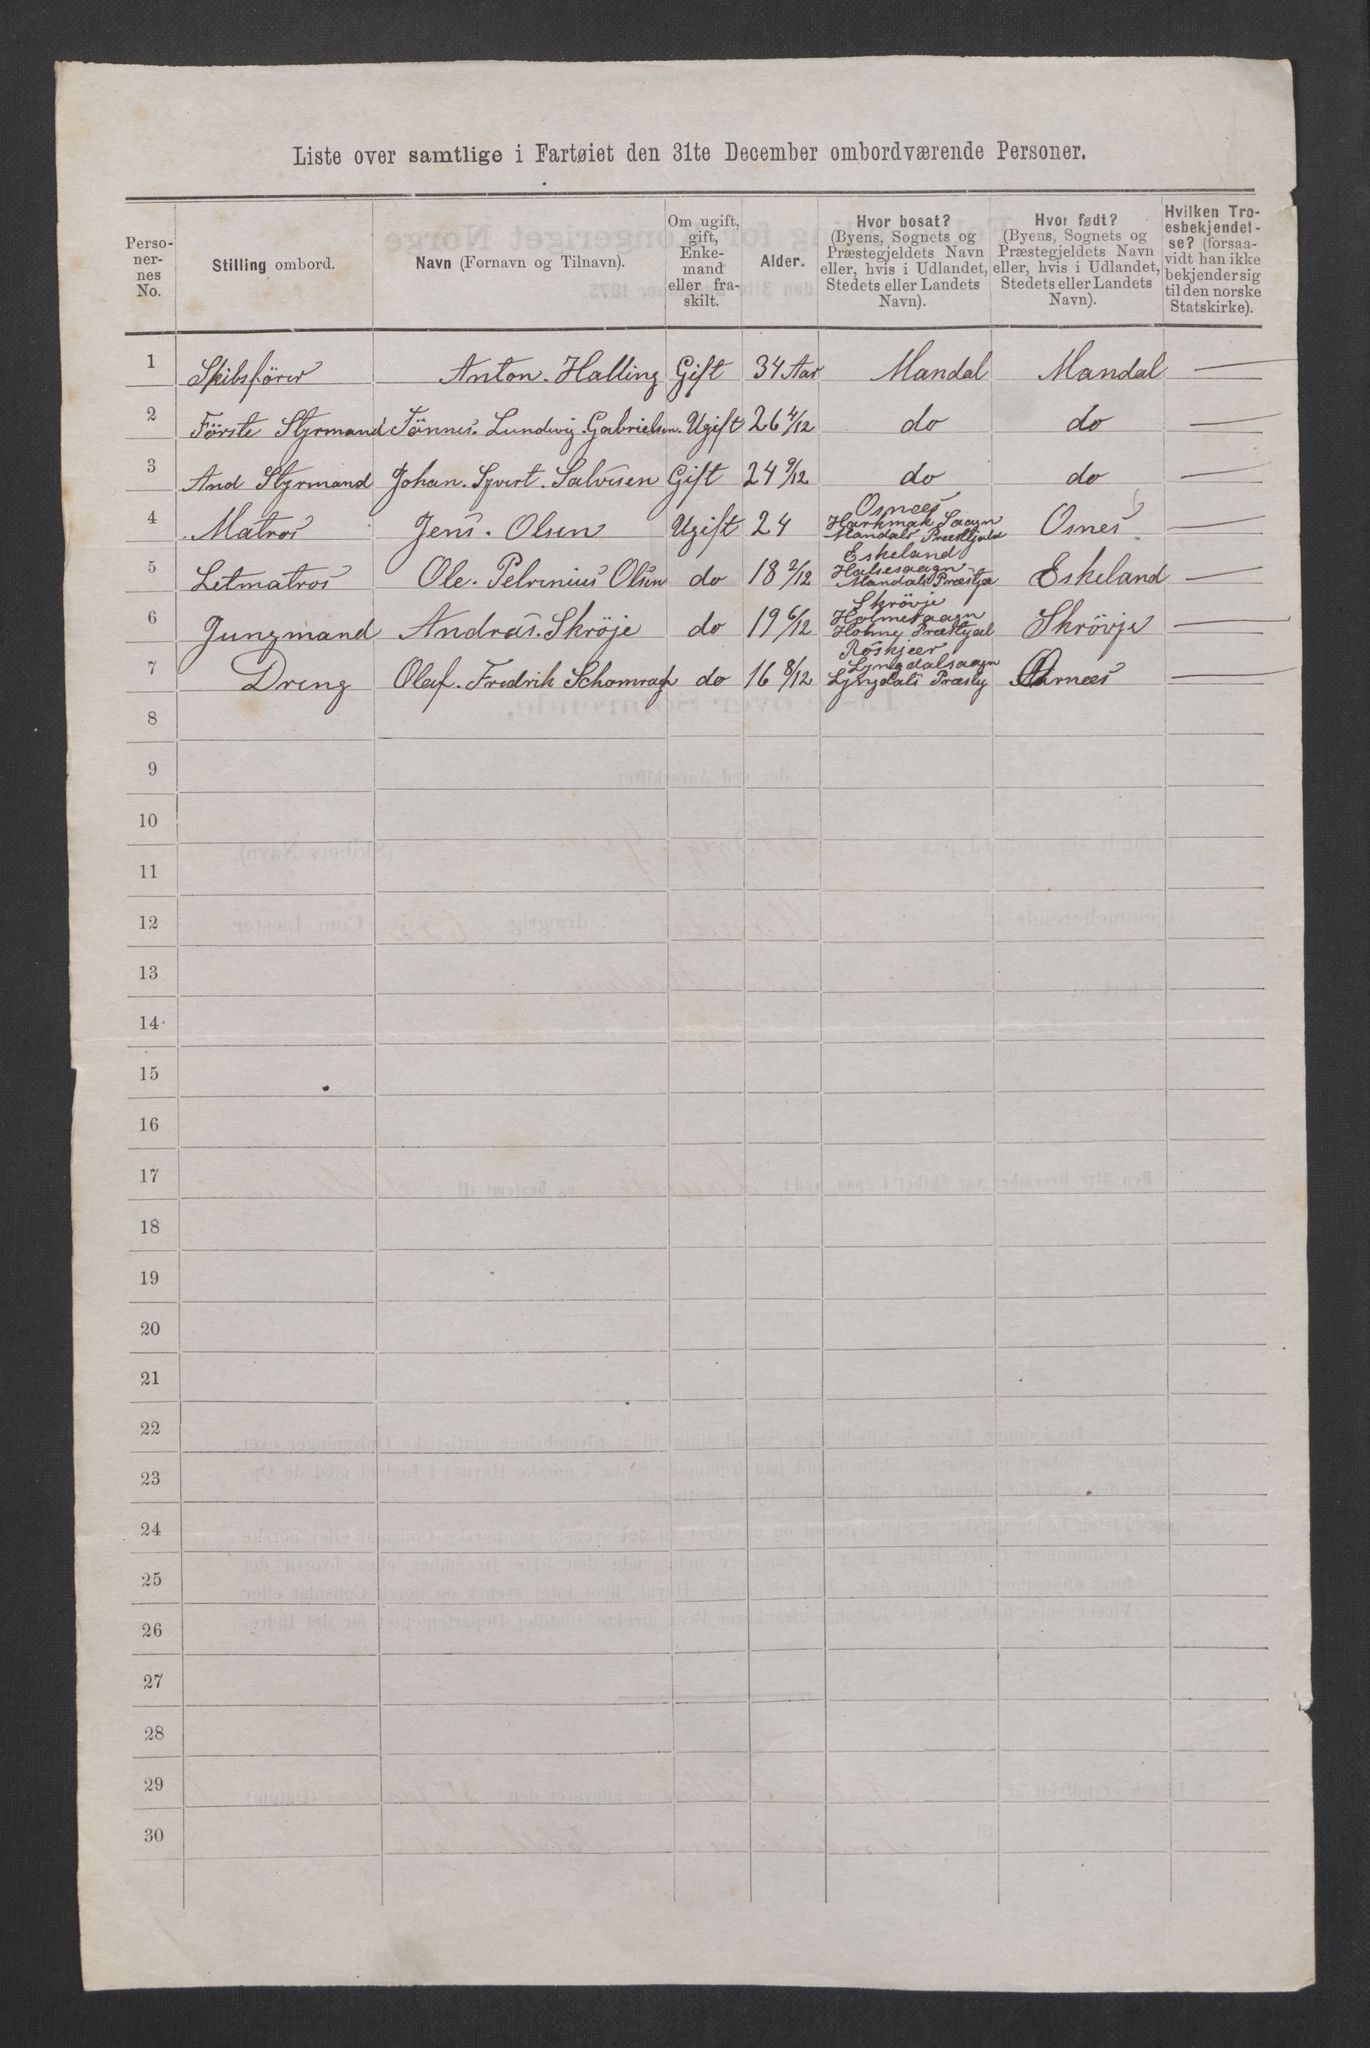 Liste over samtlige i Fartøiet den 31te December ombordværende Personer.
Perso-
ner-
nes
No.
Stilling ombord.
Navn (Fornavn og Tilnavn).
Om ugift,
gift,
Enke-
mand
eller fra-
skilt.
Alder.
Hvor bosat?
(Byens, Sognets og
Præstegjeldets Navn
eller, hvis i Udlandet,
Stedets eller Landets
Navn).
Hvor født?
(Byens, Sognets og
Præstegjeldets Navn
eller, hvis i Udlandet,
Stedets eller Landets
Navn).
Hvilken Tro-
esbekjendel-
se? (forsaa-
vidt han ikke
bekjender sig
til den norske
Statskirke).
1 Skibsförer Anton. Halling Gift 34 Aar Mandal Mandal —
2 Förste Styrmand Tönnes. Lundvig. Gabrielsen. Ugift 26 4/12 do do —
3 And Styrmand Johan. Syvert. Salvesen Gift 24 9/12 do do —
4 Matros Jens. Olsen Ugift 24 Osnees
Harkmak Saagn
Mandals Præsttjeld Osnes —
5 Letmatros Ole. Pelrenius Olsen do 18 2/12 Eskeland
Halsesaagn
Mandals Præstje Eskeland —
6 Jungmand Andras. Skröje do 19 6/12 Skrövje
Holmesaagn
Holmej Præsttjael Skrövje —
7 Dreng Olaf. Fredrik Schomragh do 16 8/12 Röskjeer
Lyngdalsaagn
Lyngdals Præstg Aarnees —
8
9
10
11
12
13
14
15
16
17
18
19
20
21
22
23
24
25
26
27
28
29
30